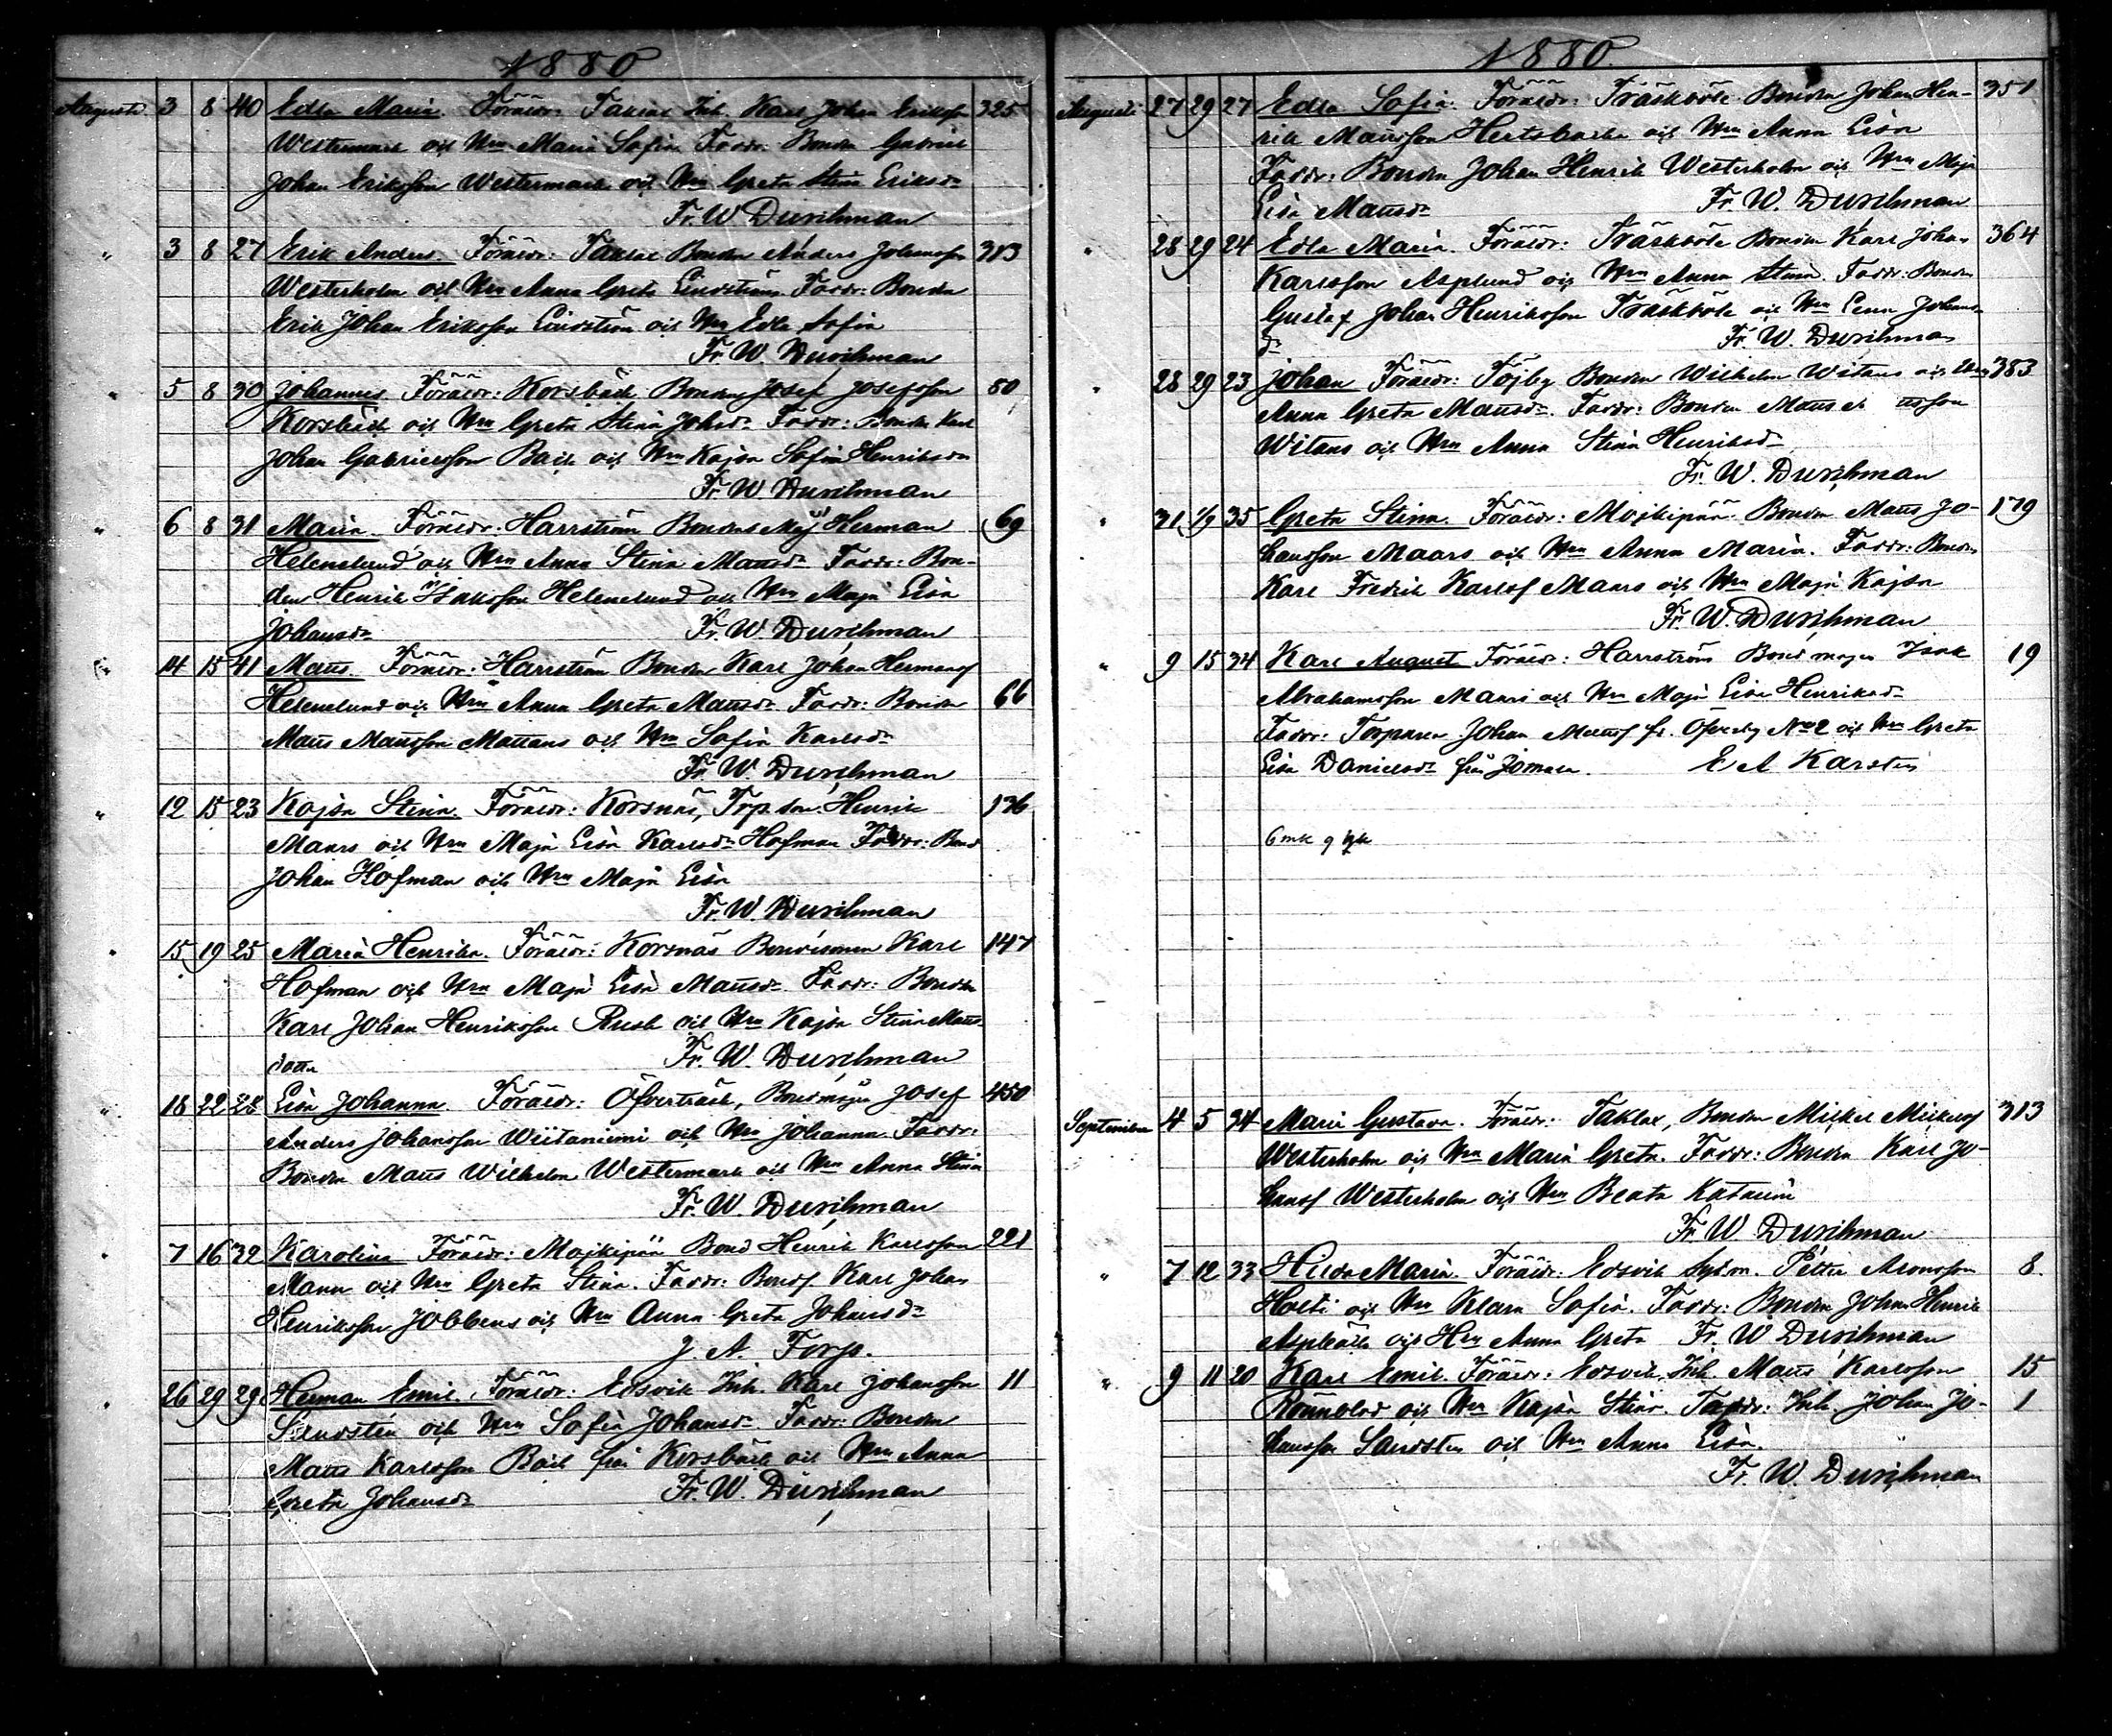 1880
Augusti 3 8 40 Edla Maria. Föräldr: Taklax Inh. Karl Johan Eriksson 325
Westermark och Hru Maria Sofia Faddr: Bonden Gabriel
Johan Eriksson Westermark och Hru Greta Stina Eriksdr
Fr. W. Durchman
" 3 8 27 Erik Anders. Föräldr: Taklax Bonden Anders Johansson 313
Westerholm och Hru Anna Greta Lindström Faddr: Bonden
Erik Johan Eriksson Lindström och Hru Edla Sofia
Fr. W. Durchman
" 5 8 30 Johannes Föräldr: Korsbäck Bonden Josef Josefsson 80
Korsbäck och Hru Greta Stina Johsdr Faddr: Bonden Karl
Johan Gabrielsson Back och Hru Kajsa Sofia Henriksdr
Fr. W. Durchman
" 6 8 31 Maria Föräldr: Harrström Bondens Måg Herman 69
Helenelund och Hru Anna Stina Mattsdr Faddr: Bon-
den Henrik Isaksson Helenelund och Hru Maja Lisa
Johansdr Fr. W. Durchman
" 14 15 41 Matts. Föräldr: Harrström Bonden Karl Johan Hermansf
Helenelund och Hru Anna Greta Mattsdr Faddr: Bonden 66
Matts Mattsson Mattans och Hru Sofia Karlsdr
Fr. W. Durchman
" 12 15 23 Kajsa Stina. Föräldr: Korsnäs, Trp. son Henrik 136
Maars och Hru Maja Lisa Karlsdr Hofman Faddr: Bond
Johan Hofman och Hru Maja Lisa
Fr. W. Durchman
" 15 19 25 Maria Henrika. Föräldr: Korsnäs Bondesonen Karl 147
Hofman och Hru Maja Lisa Mattsdr Faddr: Bonden
Karl Johan Henriksson Rusk och Hru Kajsa Stina Matts-
dotter Fr. W. Durchman
" 18 22 28 Lisa Johanna. Föräldr: Öfverträsk, Bondmågen Josef 450
Anders Johansson Wiitaniemi och Hru Johanna Faddr:
Bonden Matts Wilhelm Westermark och Hru Anna Stina
Fr. W. Durchman
" 7 16 32 Karolina Föräldr: Mojkipää Bond Henrik Karlsson 221
Mann och Hru Greta Stina. Faddr: Bondf Karl Johan
Henriksson Jobbens och Hru Anna Greta Johansdr
J. A. Torp.
" 26 29 29 Herman Emil. Föräldr: Edsvik Inh. Karl Johansson 11
Sandstén och Hru Sofia Johansdr Faddr: Bonden
Matts Karlsson Back från Korsbäck och Hru Anna
Greta Johansdr Fr. W. Durchman
1880.
Augusti 27 29 27 Edla Sofia. Föräldr: Träskböle Bonden Johan Hen- 351
rik Mattsson Hertsbacka och Hru Anna Lisa
Faddr: Bonden Johan Henrik Westerholm och Hru Maja
Lisa Mattsdr Fr. W. Durchman
" 28 29 24 Edla Maria. Föräldr: Träskböle Bonden Karl Johan 364
Karlsson Asplund och Hru Anna Stina. Faddr: Bonden
Gustaf Johan Henriksson Träskböle och Hru Lena Johans-
dr Fr. W. Durchman
" 28 29 23 Johan Föräldr: Töjby Bonden Wilhelm Witans och Hru 383
Anna Greta Mattsdr. Faddr: Bonden Matts
Witans och Hru Anna Stina Henriksdr
Fr. W. Durchman
" 31 1/9 35 Greta Stina. Föräldr: Mojkipää Bonden Matts Jo- 179
hansson Maars och Hru Anna Maria. Faddr: Bonden
Karl Fredrik Karlsf Maars och Hru Maja Kajsa
Fr. W. Durchman
" 9 15 34 Karl August Föräldr: Harrström Bondmagen Isak 19
Abrahamsson Maars och Hru Maja Lisa Henriksdr
Faddr: Torparen Johan Mattsf fr. Öfverby No 2 och Hru Greta
Lisa Danielsdr från Jomala. E A Karsten
6 mk 9 gk
September 4 5 34 Maria Gustava. Föräldr: Taklax, Bonden Mickel Mickelsf 313
Westerholm och Hru Maria Greta. Faddr: Bonden Karl Jo-
hansf Westerholm och Hru Beata Katarina
Fr. W. Durchman
" 7 12 33 Hilda Maria. Föräldr: Edsvik Sytm. Petter Aronsson 8.
Holti och Hru Klara Sofia. Faddr: Bonden Johan Henrik
Aspbäck och Hru Anna Greta Fr. W. Durchman
" 9 11 20 Karl Emil. Föräldr: Edsvik, Inh. Matts Karlsson 15
Rönnblad och Hru Kajsa Stina. Faddr: Inh. Johan Jo- 1
hansson Sandsten och Hru Anna Lisa.
Fr. W. Durchman